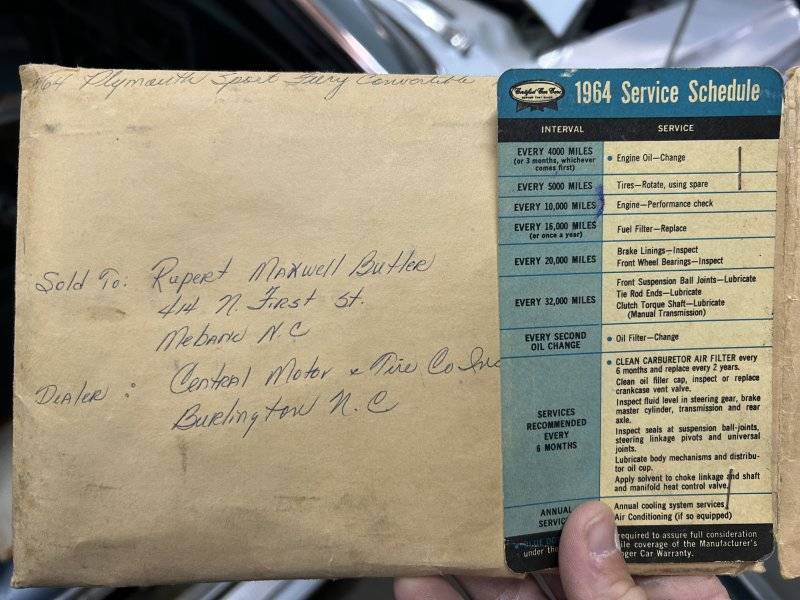 64 Plymouth Sport Fury Convertible
Sold To: Rupert Maxwell Butler
414 N. First St.
Mebane N.C
Dealer: Central Motor & Tire Co Inc
Burlington N.C
Certified Car Care
1964 Service Schedule
INTERVAL SERVICE
EVERY 4000 MILES
(or 3 months, whichever
comes first)
• Engine Oil—Change
EVERY 5000 MILES Tires—Rotate, using spare
EVERY 10,000 MILES Engine—Performance check
EVERY 16,000 MILES
(or once a year)
Fuel Filter—Replace
EVERY 20,000 MILES
Brake Linings—Inspect
Front Wheel Bearings—Inspect
EVERY 32,000 MILES
Front Suspension Ball Joints—Lubricate
Tie Rod Ends—Lubricate
Clutch Torque Shaft—Lubricate
(Manual Transmission)
EVERY SECOND
OIL CHANGE
• Oil Filter—Change
SERVICES
RECOMMENDED
EVERY
6 MONTHS
• CLEAN CARBURETOR AIR FILTER every
6 months and replace every 2 years.
Clean oil filler cap, inspect or replace
crankcase vent valve.
Inspect fluid level in steering gear, brake
master cylinder, transmission and rear
axle.
Inspect seals at suspension ball-joints,
steering linkage pivots and universal
joints.
Lubricate body mechanisms and distribu-
tor oil cup.
Apply solvent to choke linkage and shaft
and manifold heat control valve.
ANNUAL
SERVICE
Annual cooling system services,
Air Conditioning (if so equipped)
required to assure full consideration
under the ile coverage of the Manufacturer's
nger Car Warranty.